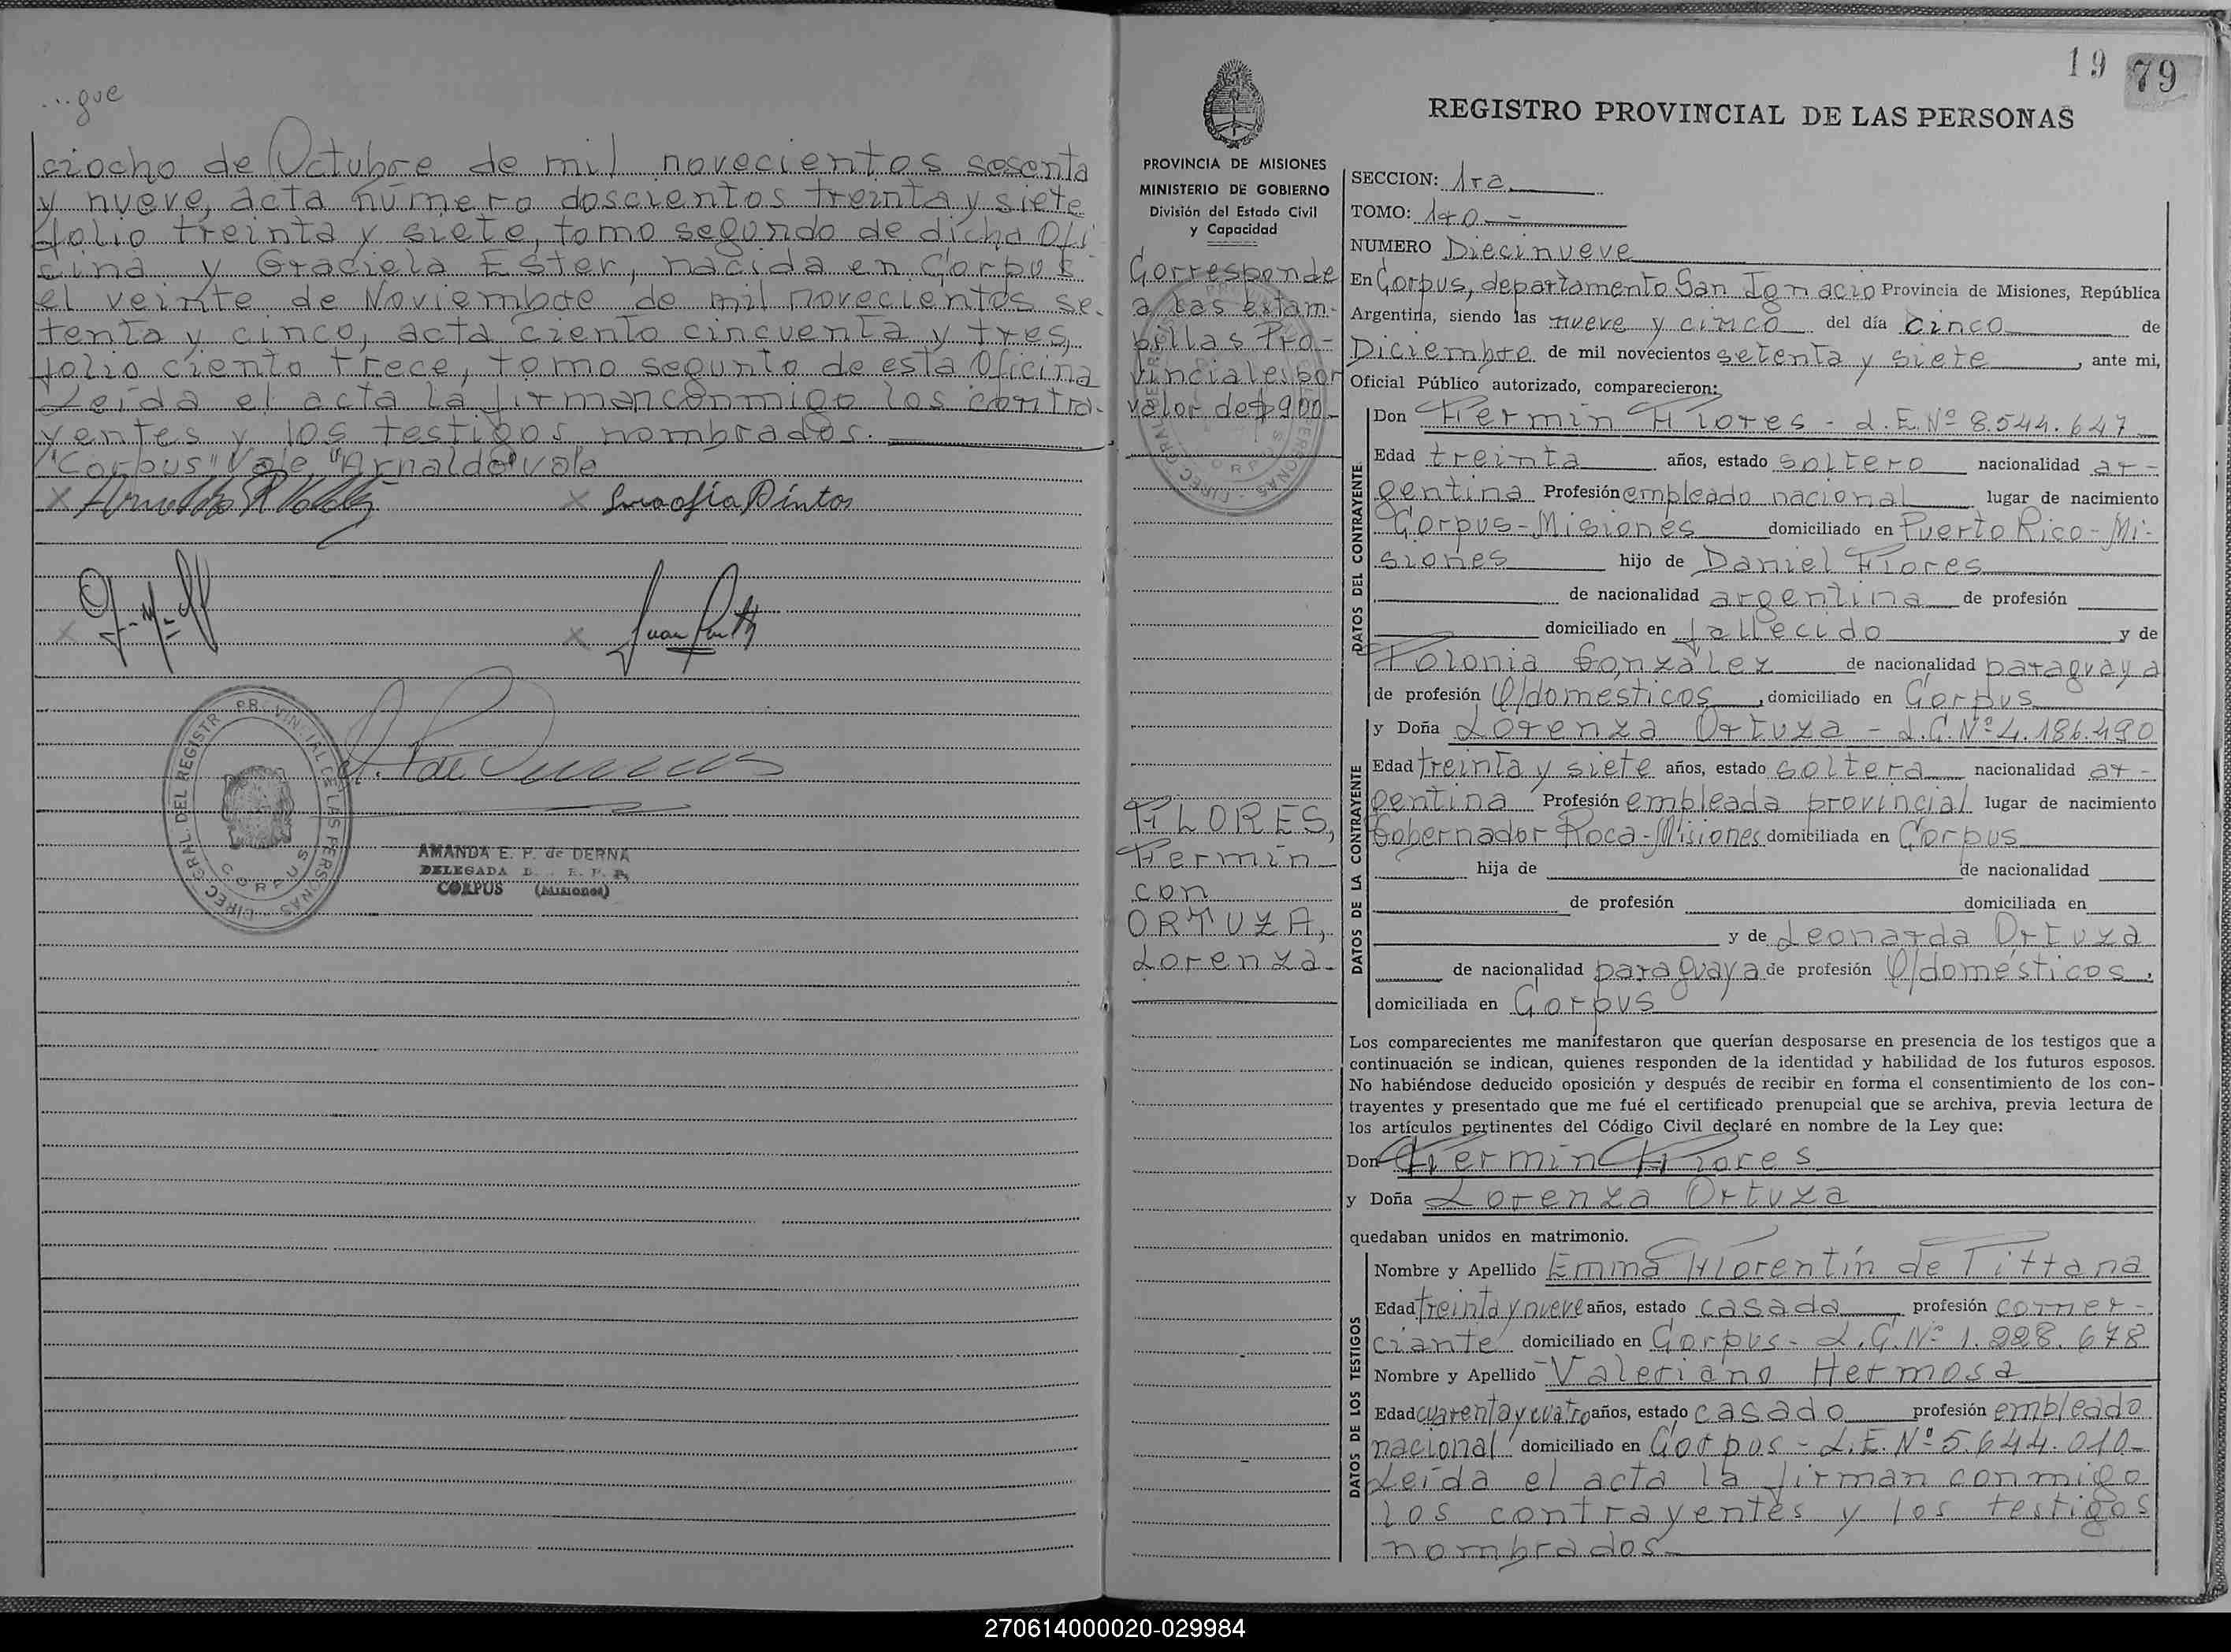 ...gue
ciocho de Octubre de mil novecientos sesenta
y nueve, acta número doscientos treinta y siete
folio treinta y siete, tomo segundo de dicha Ofi
cina y Graciela Ester, nacida en Corpus
el veinte de Noviembre de mil novecientos se-
tenta y cinco, acta ciento cincuenta y tres,
folio ciento trece, tomo segunto de esta Oficina
Leída el acta la firman conmigo los contra-
yentes y los testigos nombrados.
"Corpus" Vale, "Arnaldo" vale
AMANDA E. P. de DERNA
DELEGADA
CORPUS (Misiones)
19 79
REGISTRO PROVINCIAL DE LAS PERSONAS
PROVINCIA DE MISIONES
MINISTERIO DE GOBIERNO
División del Estado Civil
y Capacidad
Corresponde
a las estam-
pillas Pro-
vinciales por
valor de $ 900-
FLORES,
Fermin
con
ORTUZA,
Lorenza-
SECCION: 1ra
TOMO: 1ro-
NUMERO Diecinueve
En Corpus, departamento San Ignacio Provincia de Misiones, República
Argentina, siendo las nueve y cinco del día cinco de
Diciembre de mil novecientos setenta y siete, ante mi,
Oficial Público autorizado, comparecieron:
DATOS DEL CONTRAYENTE
Don Fermin Flores - L.E. Nº 8.544.647
Edad treinta años, estado soltero nacionalidad ar-
gentina Profesión empleado nacional lugar de nacimiento
Corpus-Misiones domiciliado en Puerto Rico-Mi-
siones hijo de Daniel Flores
de nacionalidad argentina de profesión
domiciliado en fallecido y de
Polonia González de nacionalidad paraguaya
de profesión Q/domésticos, domiciliado en Corpus
DATOS DE LA CONTRAYENTE
y Doña Lorenza Ortuza - L.C. Nº 4.186.490
Edad treinta y siete años, estado soltera nacionalidad ar-
gentina Profesión empleada provincial lugar de nacimiento
Gobernador Roca-Misiones domiciliada en Corpus
hija de de nacionalidad
de profesión domiciliada en
y de Leonarda Ortuza
de nacionalidad paraguaya de profesión Q/domésticos,
domiciliada en Corpus
Los comparecientes me manifestaron que querían desposarse en presencia de los testigos que a
continuación se indican, quienes responden de la identidad y habilidad de los futuros esposos.
No habiéndose deducido oposición y después de recibir en forma el consentimiento de los con-
trayentes y presentado que me fué el certificado prenupcial que se archiva, previa lectura de
los artículos pertinentes del Código Civil declaré en nombre de la Ley que:
Don Fermin Flores
y Doña Lorenza Ortuza
quedaban unidos en matrimonio.
DATOS DE LOS TESTIGOS
Nombre y Apellido Emma Florentín de Tittana
Edad treinta y nueve años, estado casada profesión comer-
ciante domiciliado en Corpus- L.C. Nº 1.228.678
Nombre y Apellido Valeriano Hermosa
Edad cuarenta y cuatro años, estado casado profesión empleado
nacional domiciliado en Corpus - L.E. Nº 5.644.010-
Leída el acta la firman conmigo
los contrayentes y los testigos
nombrados-
270614000020-029984